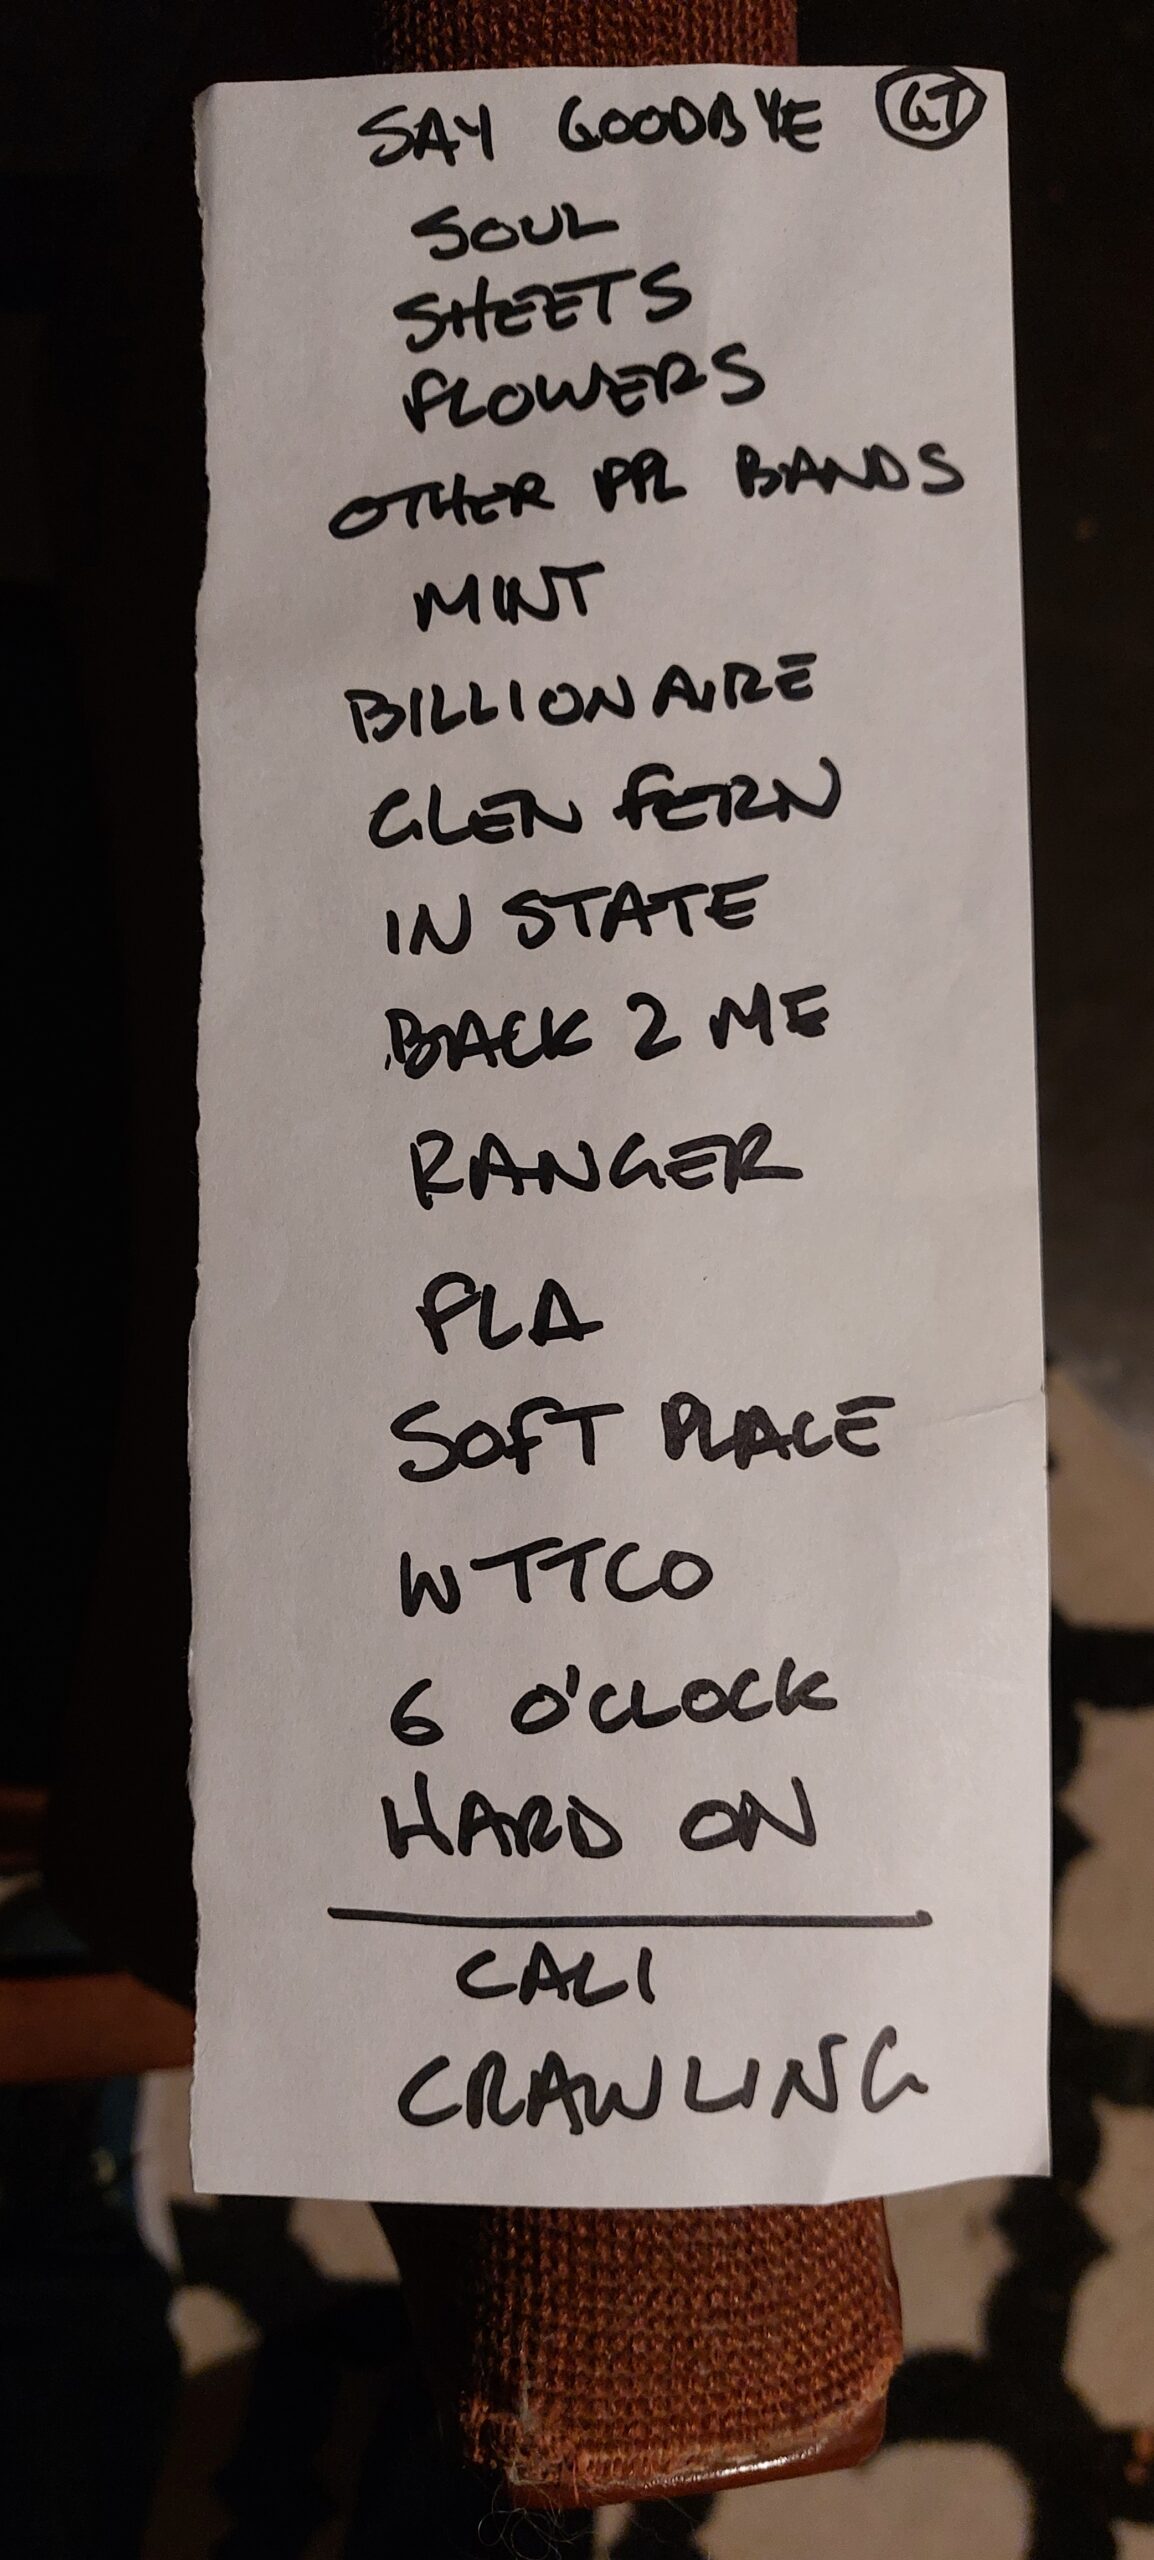 SAY GOODBYE GT
SOUL
SHEETS
FLOWERS
OTHER PPL BANDS
MINT
BILLIONAIRE
GLEN FERN
IN STATE
BACK 2 ME
RANGER
FLA
SOFT PLACE
WTTCO
6 O'CLOCK
HARD ON
CALI
CRAWLING